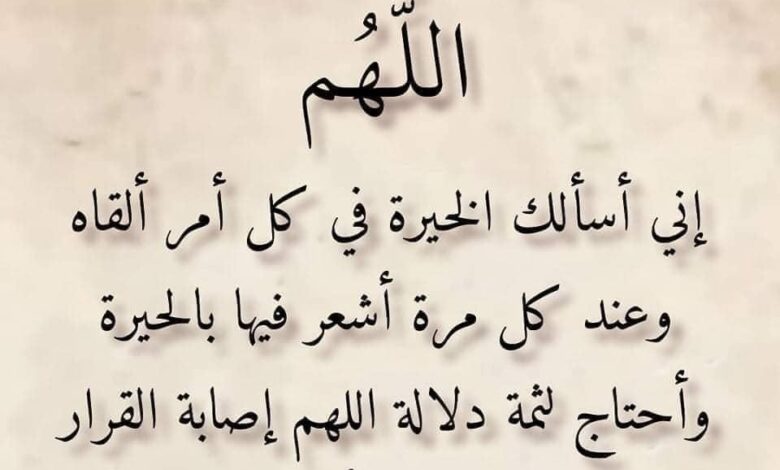 اللّهُم
إني أسألك الخيرة في كل أمر ألقاه
وعند كل مرة أشعر فيها بالحيرة
وأحتاج لثمة دلالة اللهم إصابة القرار